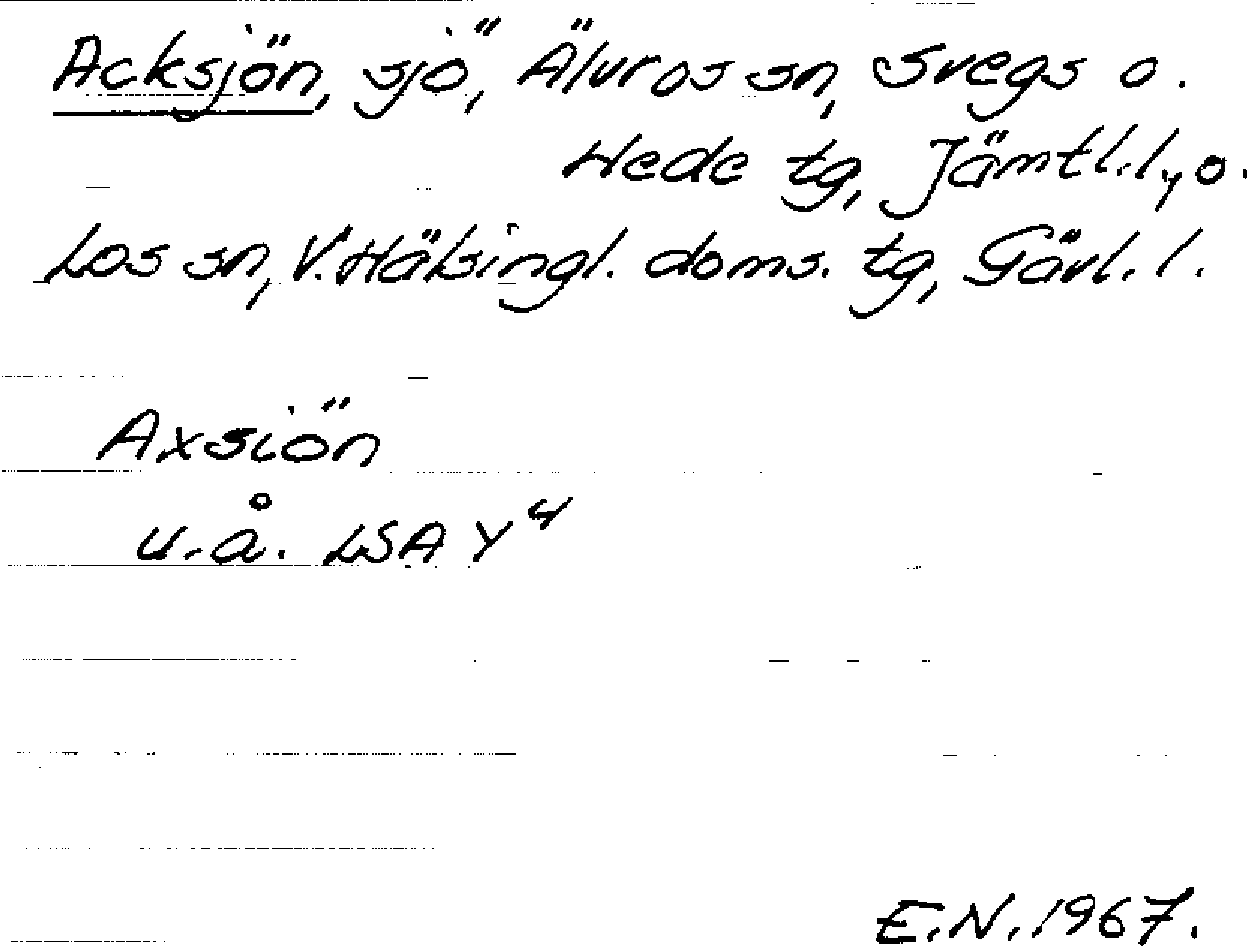 Acksjön, sjö, Älvros sn, Svegs o.
Hede tg, Jämtl. l., o.
Los sn, V. Hälsingl. doms. tg, Gävl. l.
Axsiön
u.å. LSA Y⁴
E.N. 1967.